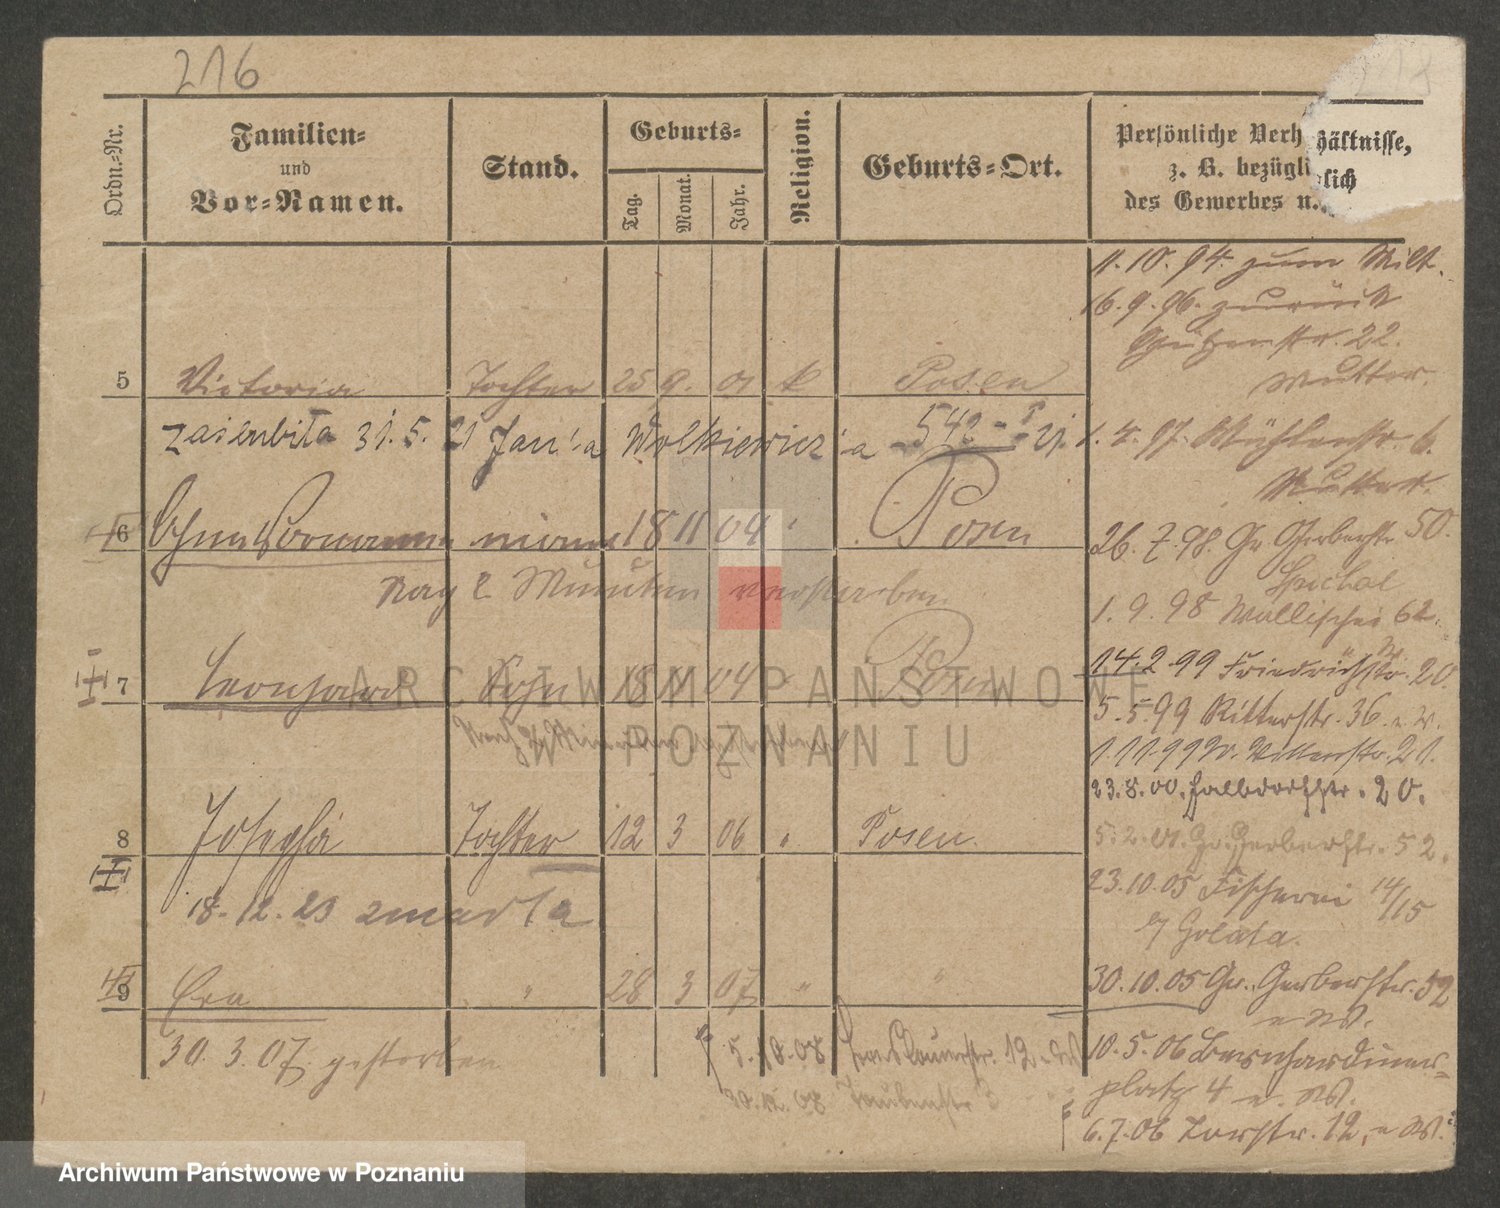 216
Ordn.-Nr.
Familien-
und
Vor-Namen.
Stand.
Geburts-
Tag.
Monat.
Jahr.
Religion.
Geburts-Ort.
Persönliche Verhältnisse,
z. B. bezüglich
des Gewerbes u.
11. 10. 94. zum Milt.
16. 9. 96. zurück
22.
Mutter.
5 Victoria Tochter 25 9. 01 k Posen
31. 5. 21 Wolkiewicz'a 542
1. 4. 97. Mühlenstr. 6.
Mutter.
6 Ohne Vornamen 18 11 04 Posen
26. 7. 98. Gr. Gerberstr. 50.
Nach 2 Minuten verstorben
1. 9. 98 Wallischei 62.
7 Leonhard Sohn 18 11 04 Posen
14. 2. 99 Friedrichstr. 20.
5. 5. 99 Ritterstr. 36. e. W.
1. 11. 99 21.
23. 8. 00. Halbdorfstr. 20.
8 Josepha Tochter 12 3 06 " Posen.
5. 2. 01. Gr. Gerberstr. 52.
23. 10. 05 Fischerei 14/15
18. 12. 23 zmarła
b/ Golata.
9 Eva " 28 3 07 " "
30. 10. 05 Gr. Gerberstr. 52
e W.
30. 3. 07 gestorben
5. 10. 08 12 e W
10. 5. 06 Bernhardiner-
platz 4 e. W.
20. 12. 08 Taubenstr 3
6. 7. 06 Torstr. 12, e W.
ARCHIWUM PAŃSTWOWE
W POZNANIU
Archiwum Państwowe w Poznaniu